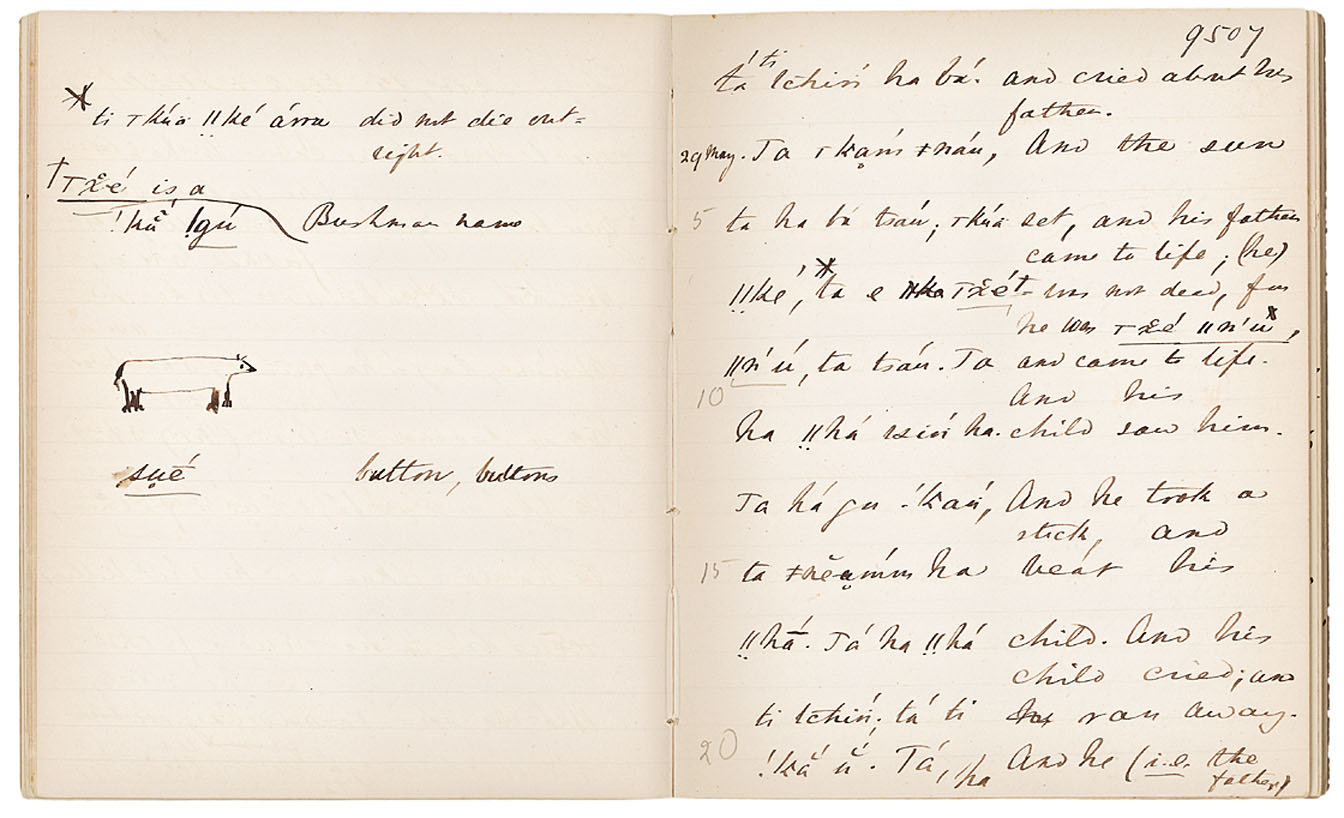 ti ꞇkúa ‖ké árra did not die out=
right.
†Tx̌é is a
!kũ ǀgú Bushman name
sụé button, buttons
9507
tá ti ǀchiń ha bá. and cried about his
father.
29 May. Ta ꞇkạḿ ǂnáu, And the sun
5 ta ha bá tsáu; ꞇkúa set, and his father
came to life; (he)
‖ké, ta e Tx̌é† was not dead, for
he was Tx̌é ‖n'ú,
‖n'ú, ta tsáu. Ta and came to life.
10 And his
ha ‖há child saw him.
Ta há gu !kaú, And he took a
stick, and
15 ta ha beat his
‖há. Tá ha ‖há child. And his
child cried; and
ti ǀchiń; tá ti ran away.
20 !kã́ ŭ. Tá, ha And he (i.e. the
father)